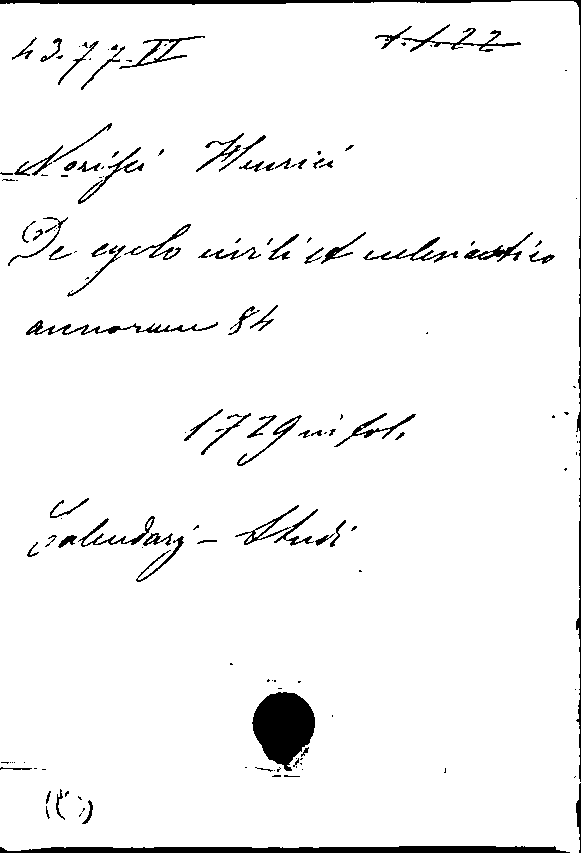 43.7.7.VI
1.1.22
Norisii Henrici
De cyclo civili et ecclesiastico
annorum 84
1729 in fol.
Calendarj - Studi